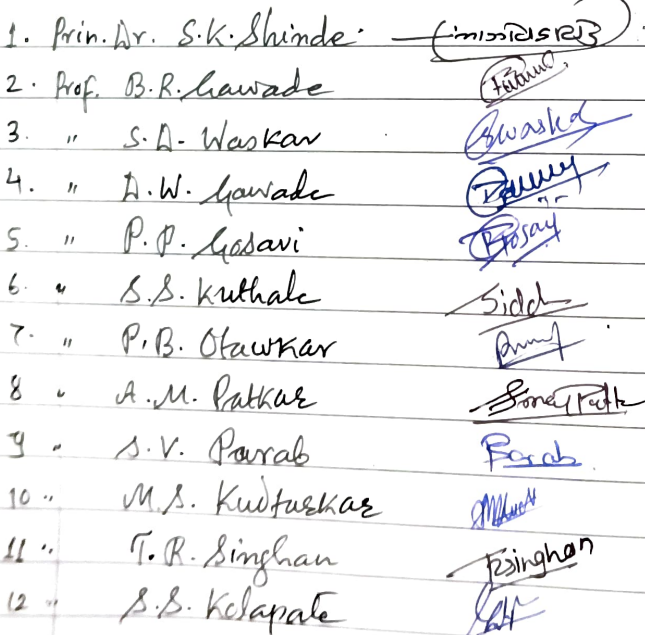 1. Prin. Dr. S.K. Shinde
2. Prof. B.R. Gawade
3. " S.D. Waskar Swaskar
4. " D.W. Gawade
5. " P.P. Gosavi
6. " S.S. Kuthale Siddh
7. " P.B. Otawkar
8 " A.M. Patkar
9 " S.V. Parab Parab
10 " M.S. Kudtarkar
11 " T.R. Singhan TRsinghan
12 " S.S. Kolapate